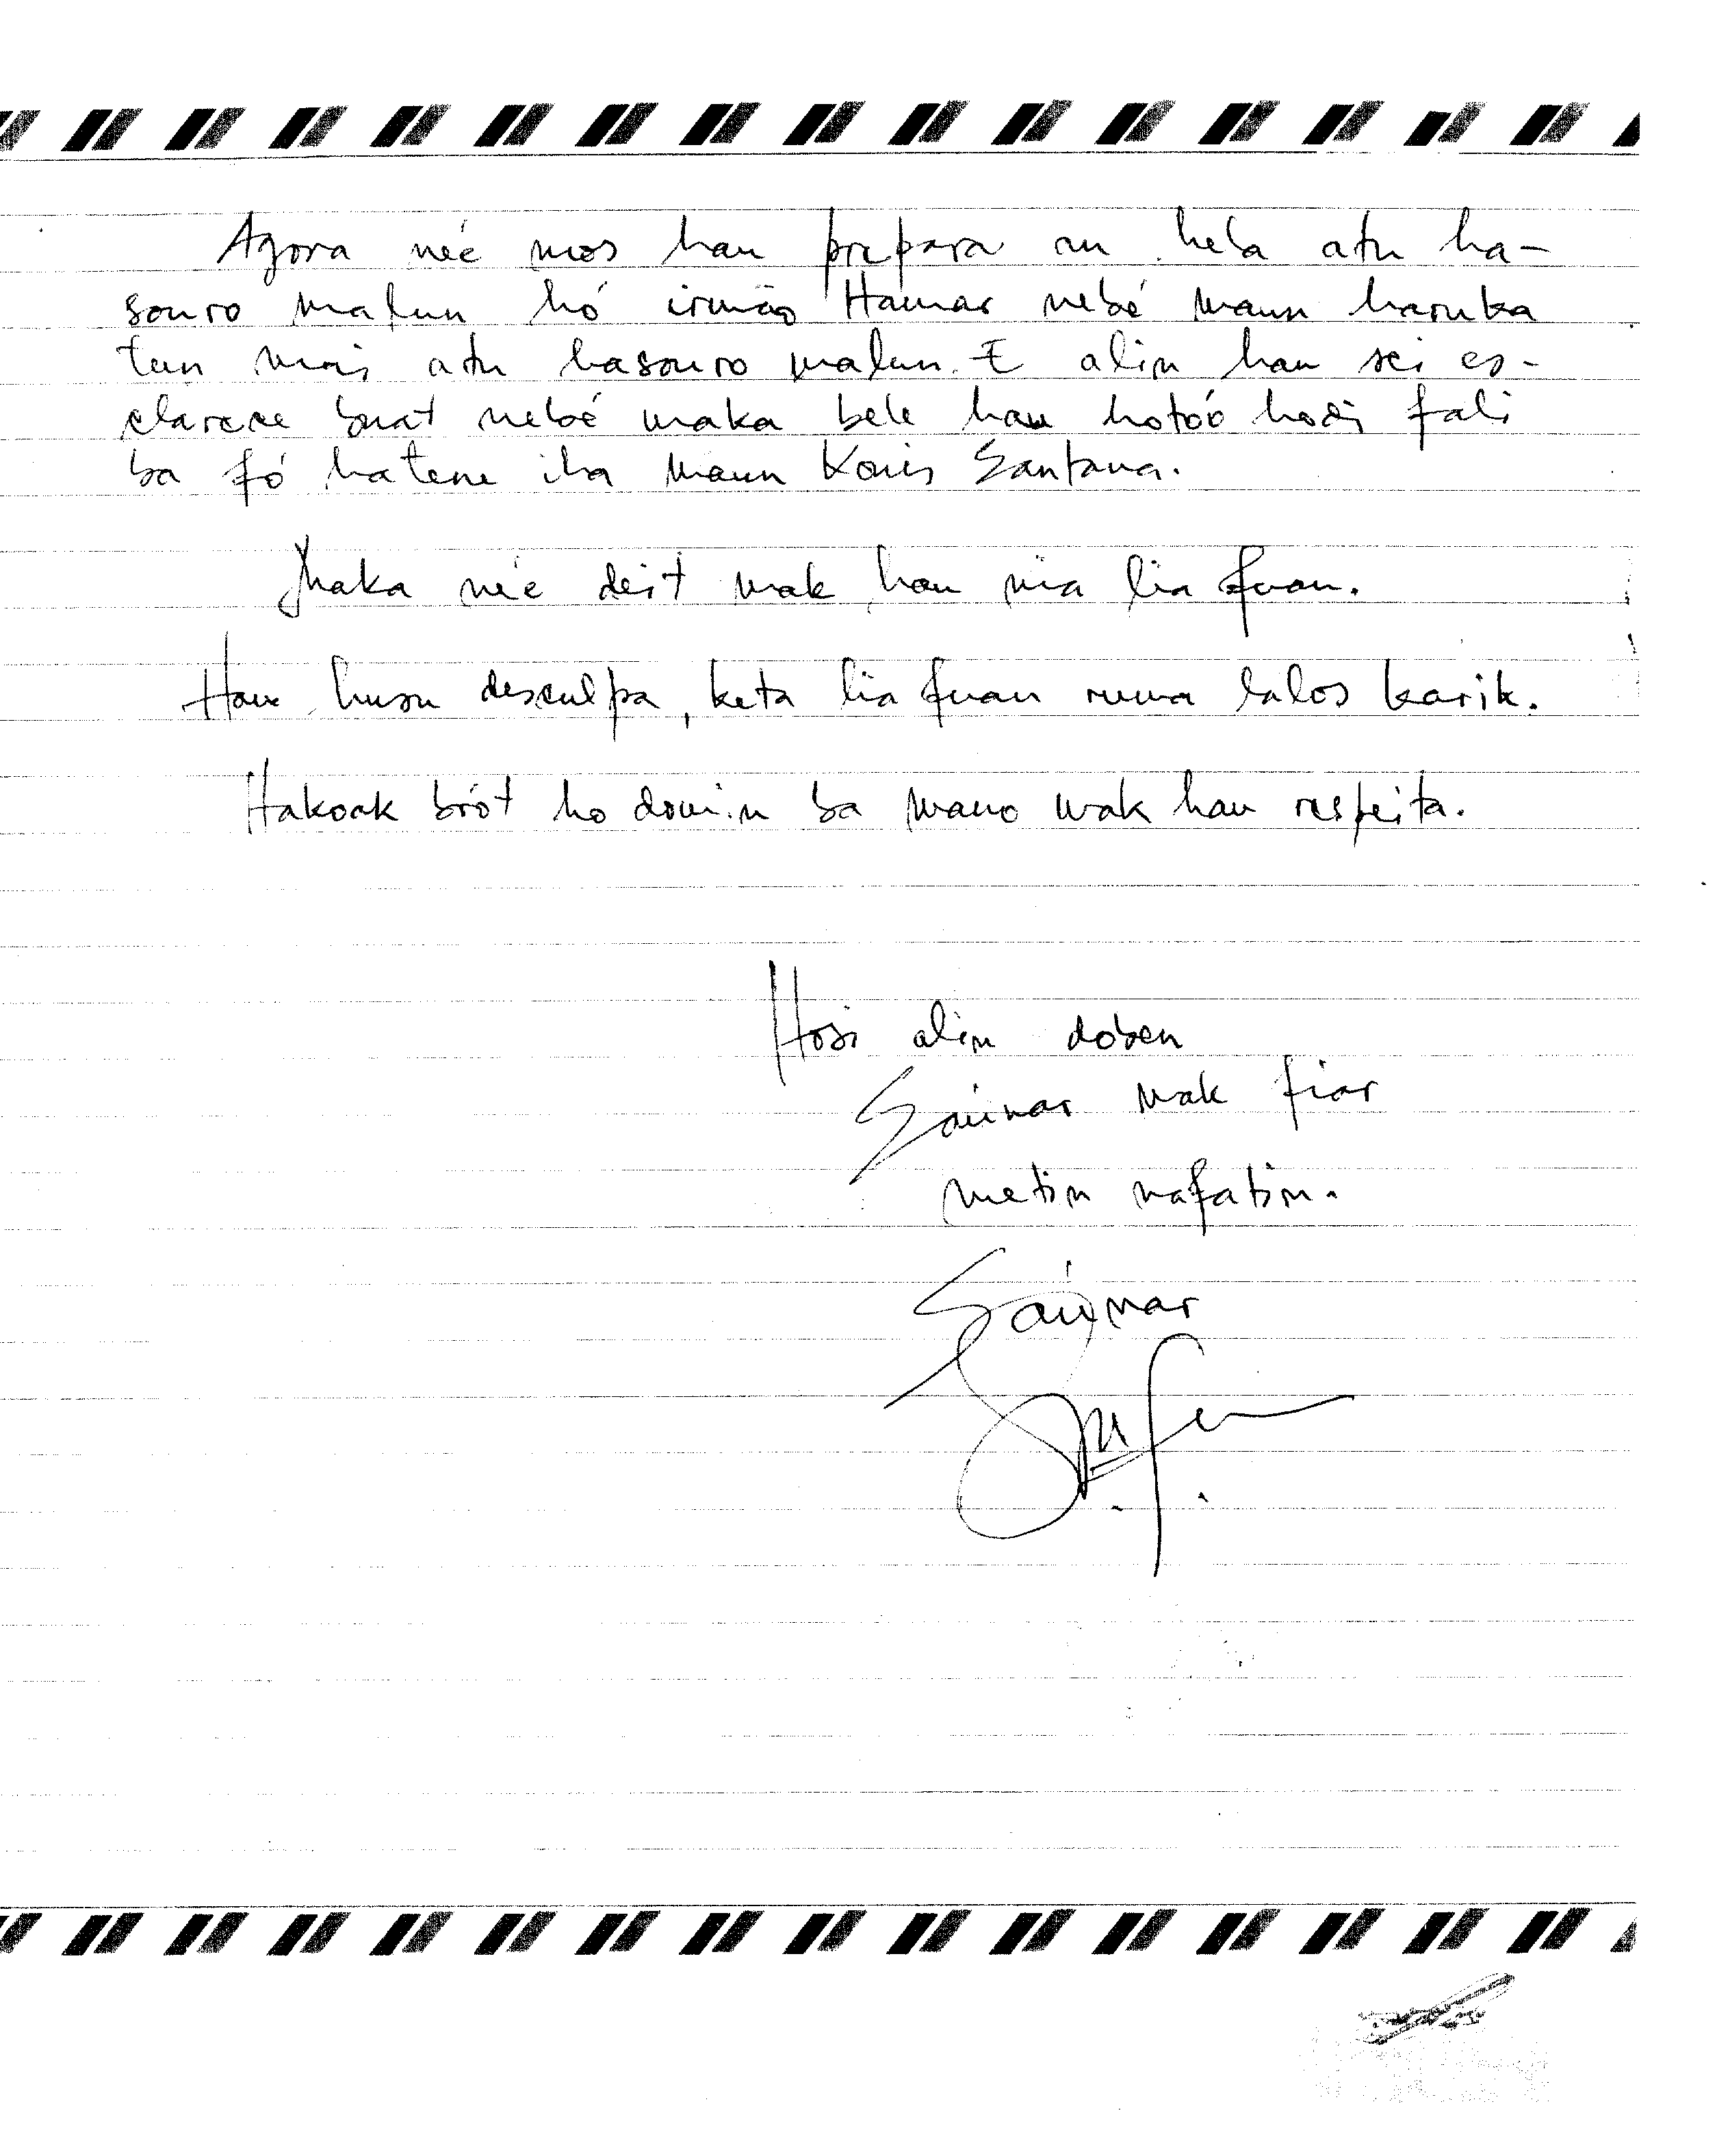 Agora neé mos hau prepara an hela atu ha-
souro malun hó irmão Hamar nebé maun haruka
tan mai atu hasouro malun. E alin hau sei es-
clarece buat nebé maka bele hau hotóo hodi fali
ba fó hatene iha maun Konis Santana.
Maka neé deit mak hau nia lia fuan.
Hau husu desculpa, keta lia fuan ruma lalos karik.
Hakoak brót ho domin ba mano mak hau respeita.
Hosi alin doben
Saúnar mak fiar
metin nafatin.
Saúnar